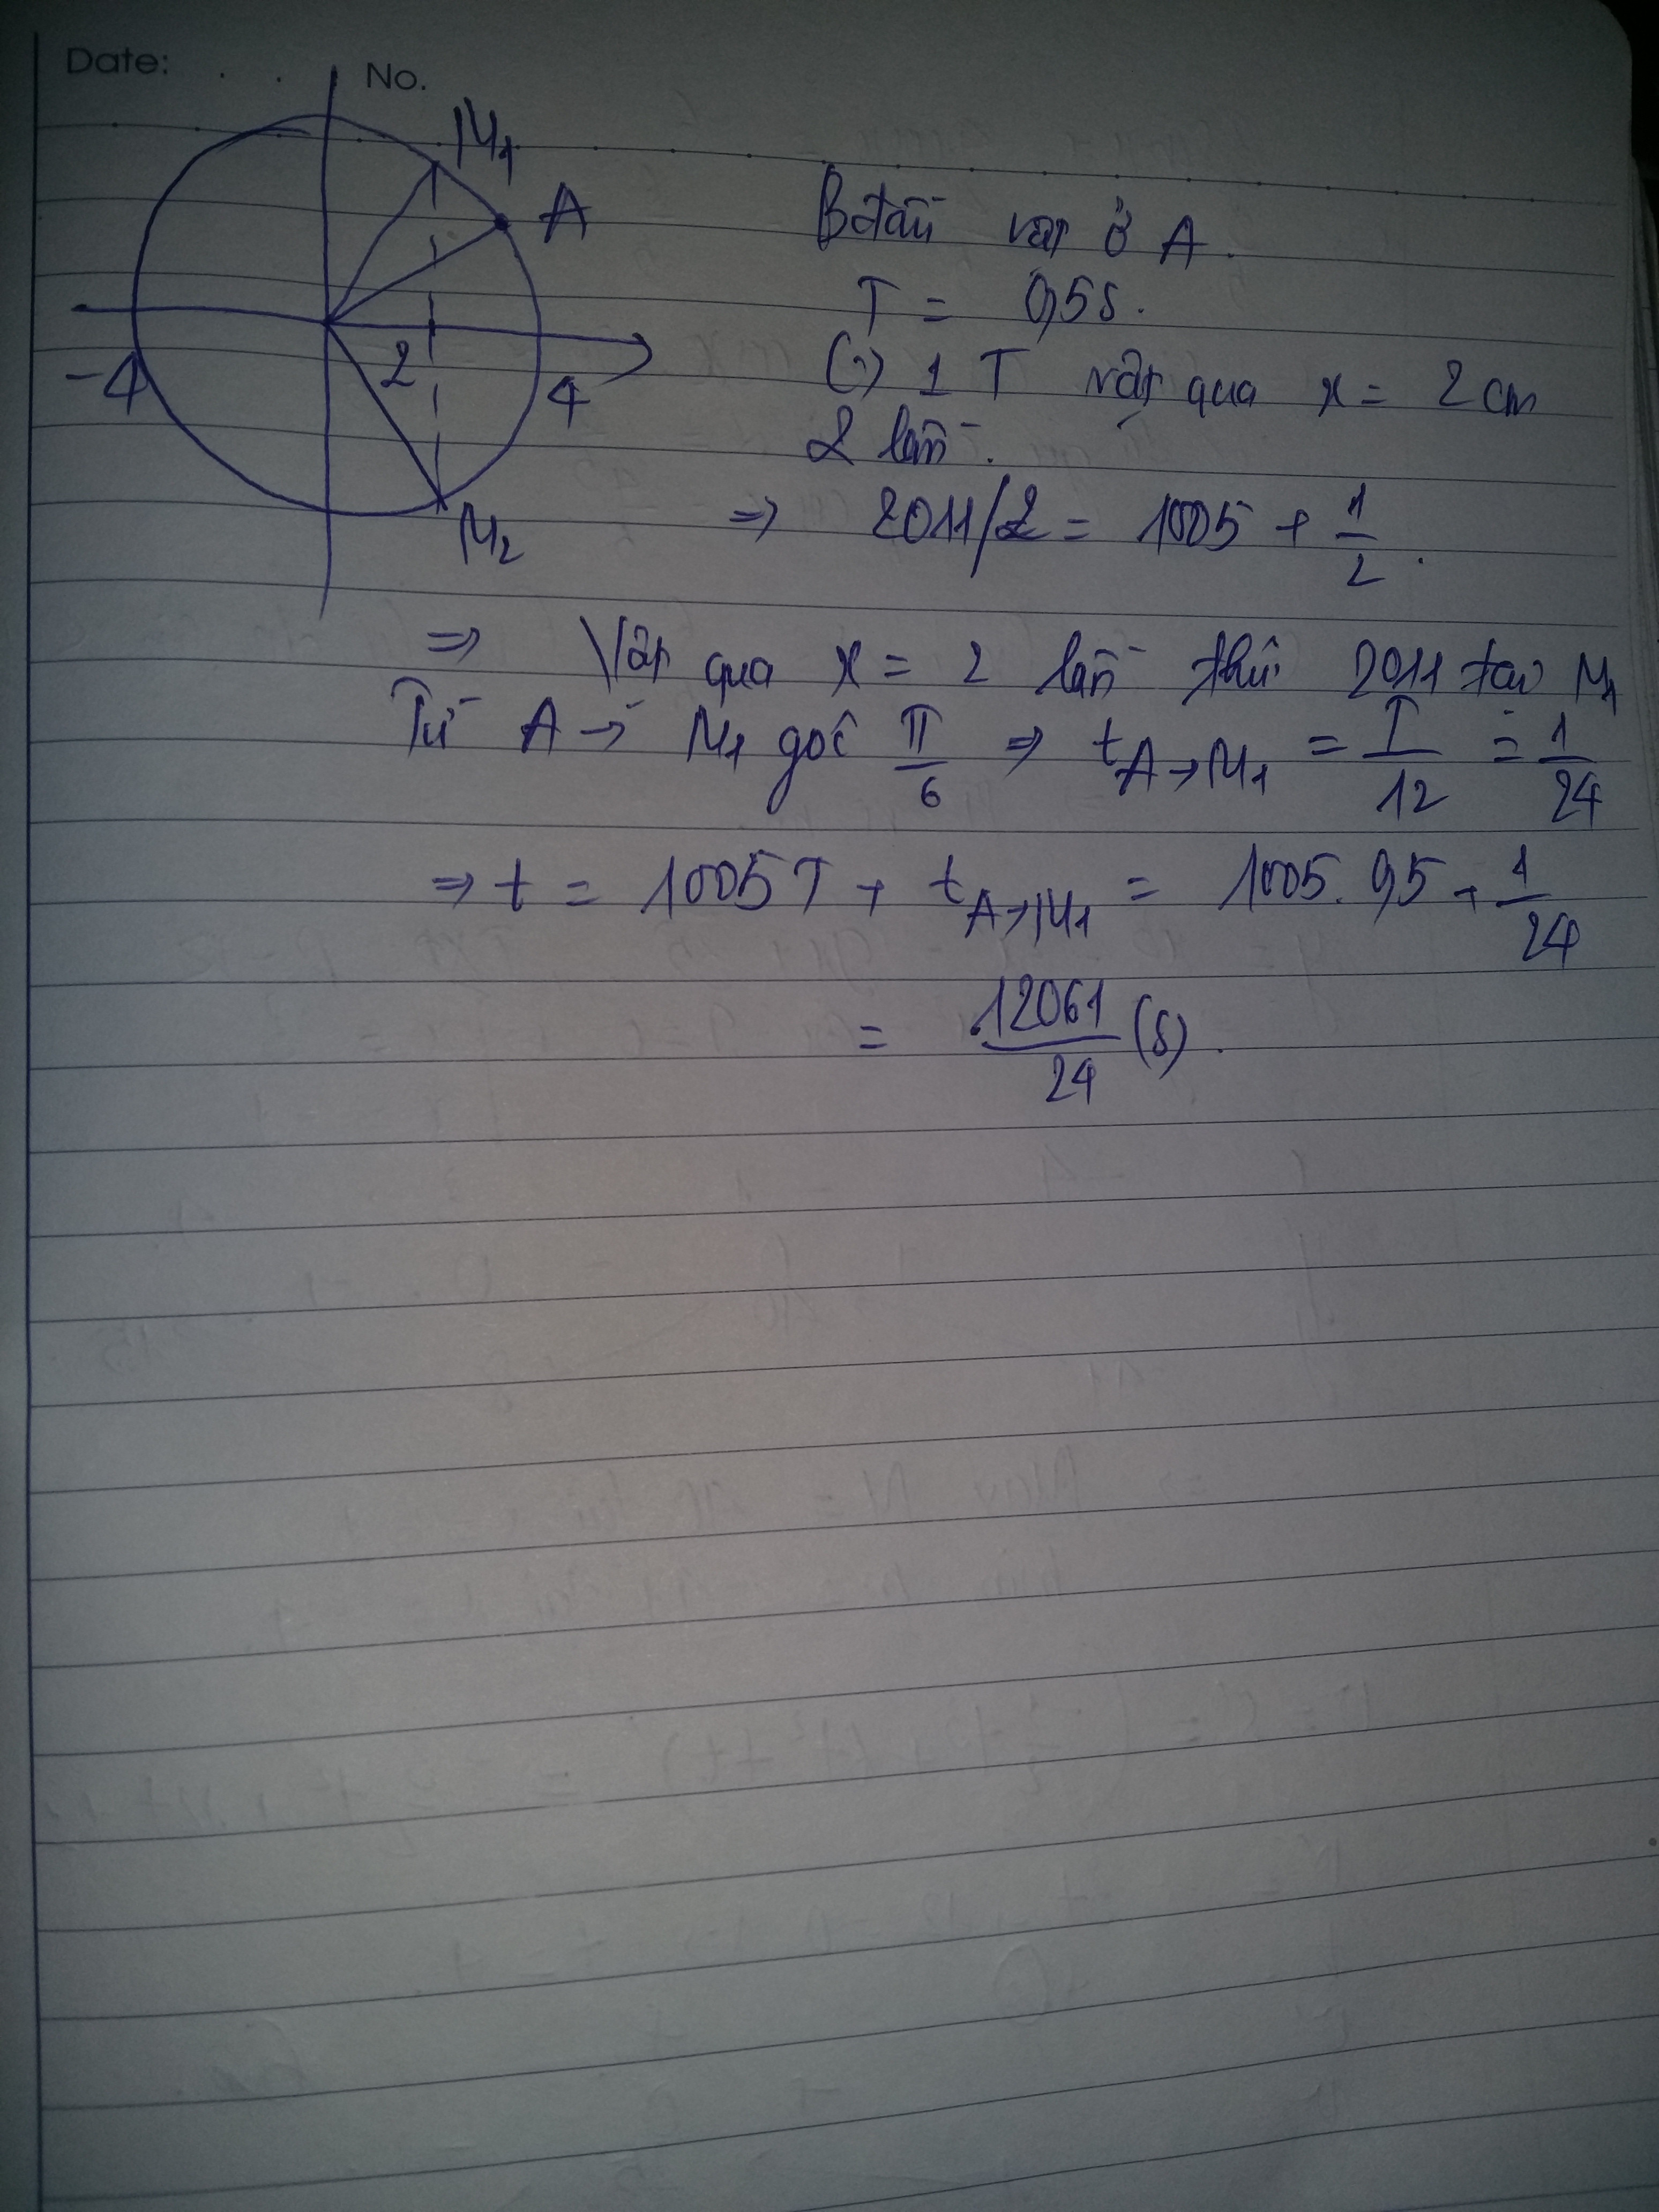 Date: . . No.
M₁
A
-4
2
4
M₂
B đầu vật ở A.
T = 0,5s.
(:) 1 T vật qua x = 2 cm
2 lần.
=> 2011/2 = 1005 + 1/2.
=> Vật qua x = 2 lần thứ 2011 tại M₁
Từ A → M₁ góc π/6 => t A→M₁ = T/12 = 1/24
=> t = 1005T + t A→M₁ = 1005. 0,5 + 1/24
= 12061/24 (s).